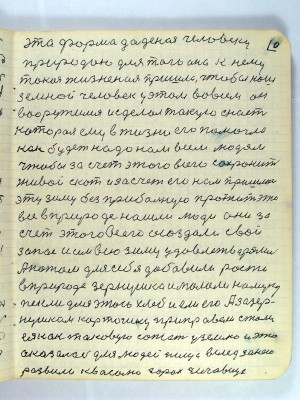 10
эта форма даденая человеку
природою для того она к нему
такая жизненая пришла, чтобы наш
земной человек у этом вовсем он
вооружился и сделал такую снасть
которая ему в жизни его помогла
как будет надо нам всем людям
чтобы за счет этого всего сохранить
живой скот и за счет его нам пришлось
эту зиму без прибальную прожить это
все в природе нашли люди они за
счет этого всего создали свой
запас и им всю зиму удовлетворяли
А потом для себя добавили рость
в природе зернушка и мололи на муку
пекли для этого хлеб и ели его А за зер-
нушком картошку приправой стали
ея как таковую сожать у землю и это
оказалось для людей пища вслед за нею
развили квасолю горох чичавицу